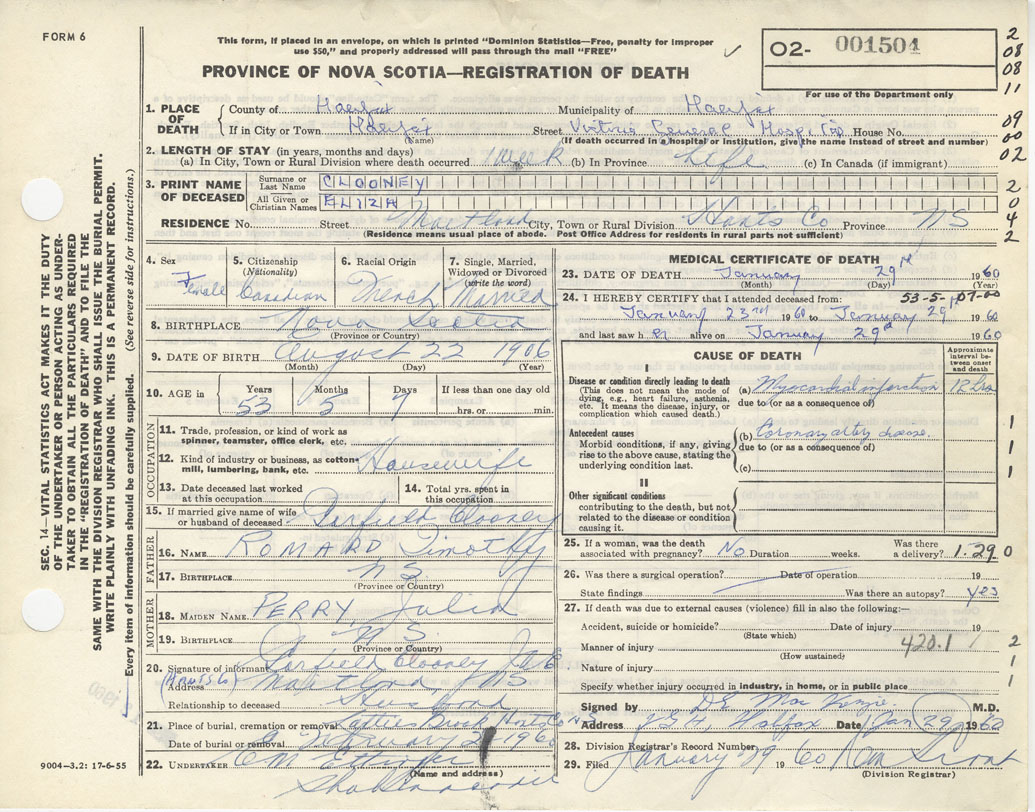 FORM 6
This form, if placed in an envelope, on which is printed "Dominion Statistics—Free, penalty for improper
use $50," and properly addressed will pass through the mail "FREE"
PROVINCE OF NOVA SCOTIA—REGISTRATION OF DEATH
02- 001504
For use of the Department only
2
08
08
11
09
00
02
2
0
4
2
SEC. 14—VITAL STATISTICS ACT MAKES IT THE DUTY
OF THE UNDERTAKER OR PERSON ACTING AS UNDER-
TAKER TO OBTAIN ALL THE PARTICULARS REQUIRED
IN THE "REGISTRATION OF DEATH" AND FILE THE
SAME WITH THE DIVISION REGISTRAR WHO SHALL ISSUE THE BURIAL PERMIT.
WRITE PLAINLY WITH UNFADING INK. THIS IS A PERMANENT RECORD.
Every item of information should be carefully supplied. (See reverse side for instructions.)
1. PLACE OF DEATH County of Halifax Municipality of Halifax
If in City or Town Halifax Street Victoria General Hospital House No.
(Name) (If death occurred in a hospital or institution, give the name instead of street and number)
2. LENGTH OF STAY (in years, months and days)
(a) In City, Town or Rural Division where death occurred 1 week (b) In Province Life (c) In Canada (if immigrant)
3. PRINT NAME OF DECEASED Surname or Last Name CLOONEY
All Given or Christian Names ELIZA
RESIDENCE No. Street Maitland City, Town or Rural Division Hants Co Province NS
(Residence means usual place of abode. Post Office Address for residents in rural parts not sufficient)
4. Sex Female
5. Citizenship (Nationality) Canadian
6. Racial Origin French
7. Single, Married, Widowed or Divorced (write the word) Married
8. BIRTHPLACE Nova Scotia
(Province or Country)
9. DATE OF BIRTH August 22 1906
(Month) (Day) (Year)
10. AGE in Years 53 Months 5 Days 7 If less than one day old hrs. or min.
OCCUPATION
11. Trade, profession, or kind of work as spinner, teamster, office clerk, etc.
12. Kind of industry or business, as cotton mill, lumbering, bank, etc. Housewife
13. Date deceased last worked at this occupation
14. Total yrs. spent in this occupation
15. If married give name of wife or husband of deceased Garfield Clooney
FATHER
16. NAME ROMARD, Timothy
17. BIRTHPLACE N S
(Province or Country)
MOTHER
18. MAIDEN NAME PERRY, Julia
19. BIRTHPLACE N S
(Province or Country)
20. Signature of informant Garfield Clooney
(Hants Co) Address Maitland, NS
Relationship to deceased Husband
21. Place of burial, cremation or removal Brook Hants Co NS
Date of burial or removal February 2 1960
22. UNDERTAKER
(Name and address)
Shubenacadie
9004—3.2: 17-6-55
MEDICAL CERTIFICATE OF DEATH
23. DATE OF DEATH January 29th 1960
(Month) (Day) (Year)
24. I HEREBY CERTIFY that I attended deceased from: 53-5-07-00
January 23rd 1960 to January 29th 1960
and last saw her alive on January 29th 1960
CAUSE OF DEATH
Approximate interval between onset and death
I
Disease or condition directly leading to death
(This does not mean the mode of dying, e.g., heart failure, asthenia, etc. It means the disease, injury, or complication which caused death.)
(a) Myocardial infarction 12 hrs
due to (or as a consequence of)
Antecedent causes
Morbid conditions, if any, giving rise to the above cause, stating the underlying condition last.
(b) Coronary artery disease.
due to (or as a consequence of)
(c)
1
1
1
II
Other significant conditions
contributing to the death, but not related to the disease or condition causing it.
25. If a woman, was the death associated with pregnancy? No Duration weeks. Was there a delivery? 1.29 0
26. Was there a surgical operation? Date of operation 19
State findings Was there an autopsy? yes
27. If death was due to external causes (violence) fill in also the following:—
Accident, suicide or homicide? Date of injury 19
(State which)
Manner of injury 420.1 2
(How sustained)
Nature of injury 1
Specify whether injury occurred in industry, in home, or in public place
Signed by M.D.
Address V.G.H. Halifax Date Jan 29 1960
28. Division Registrar's Record Number
29. Filed January 29 1960
(Division Registrar)